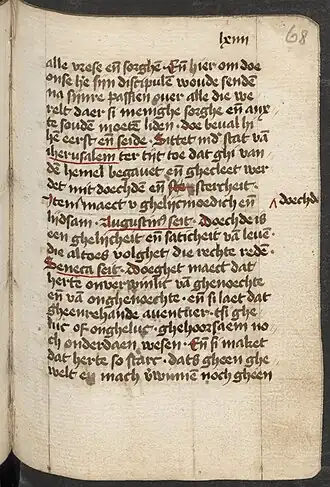 lxiiii
68
alle vrese en̄ sorghe · En̄ hier om doe
onse he sijn discipulē woude sendē
na sijnre passien ouer alle die we
relt daer si menighe sorghe en̄ anx
te soudē moetē liden · doe beual hi
hē eerst en̄ seide · Sittet in d' stat vā
iherusalem ter tijt toe dat ghi van
den hemel begauet en̄ ghecleet wer
det mit doechdē en̄ stercheit ·
Item maect v ghelijcmoedich en̄
lijdsam · Augustin9 seit · doechde is
doechde
een ghelijcheit en̄ saticheit vā leuē
die altoes volghet die rechte redē ·
Seneca seit · doeghet maect dat
herte onverwinlic vā ghenoechte
en̄ vā onghenoechte · en̄ si laet dat
gheenrehande auentuer · tsi ghe
luc of ongheluc · ghehoorsaem no
ch onderdaen wesen · En̄ si maket
dat herte so starc · dats gheen ghe
welt en mach v'winnē noch gheen